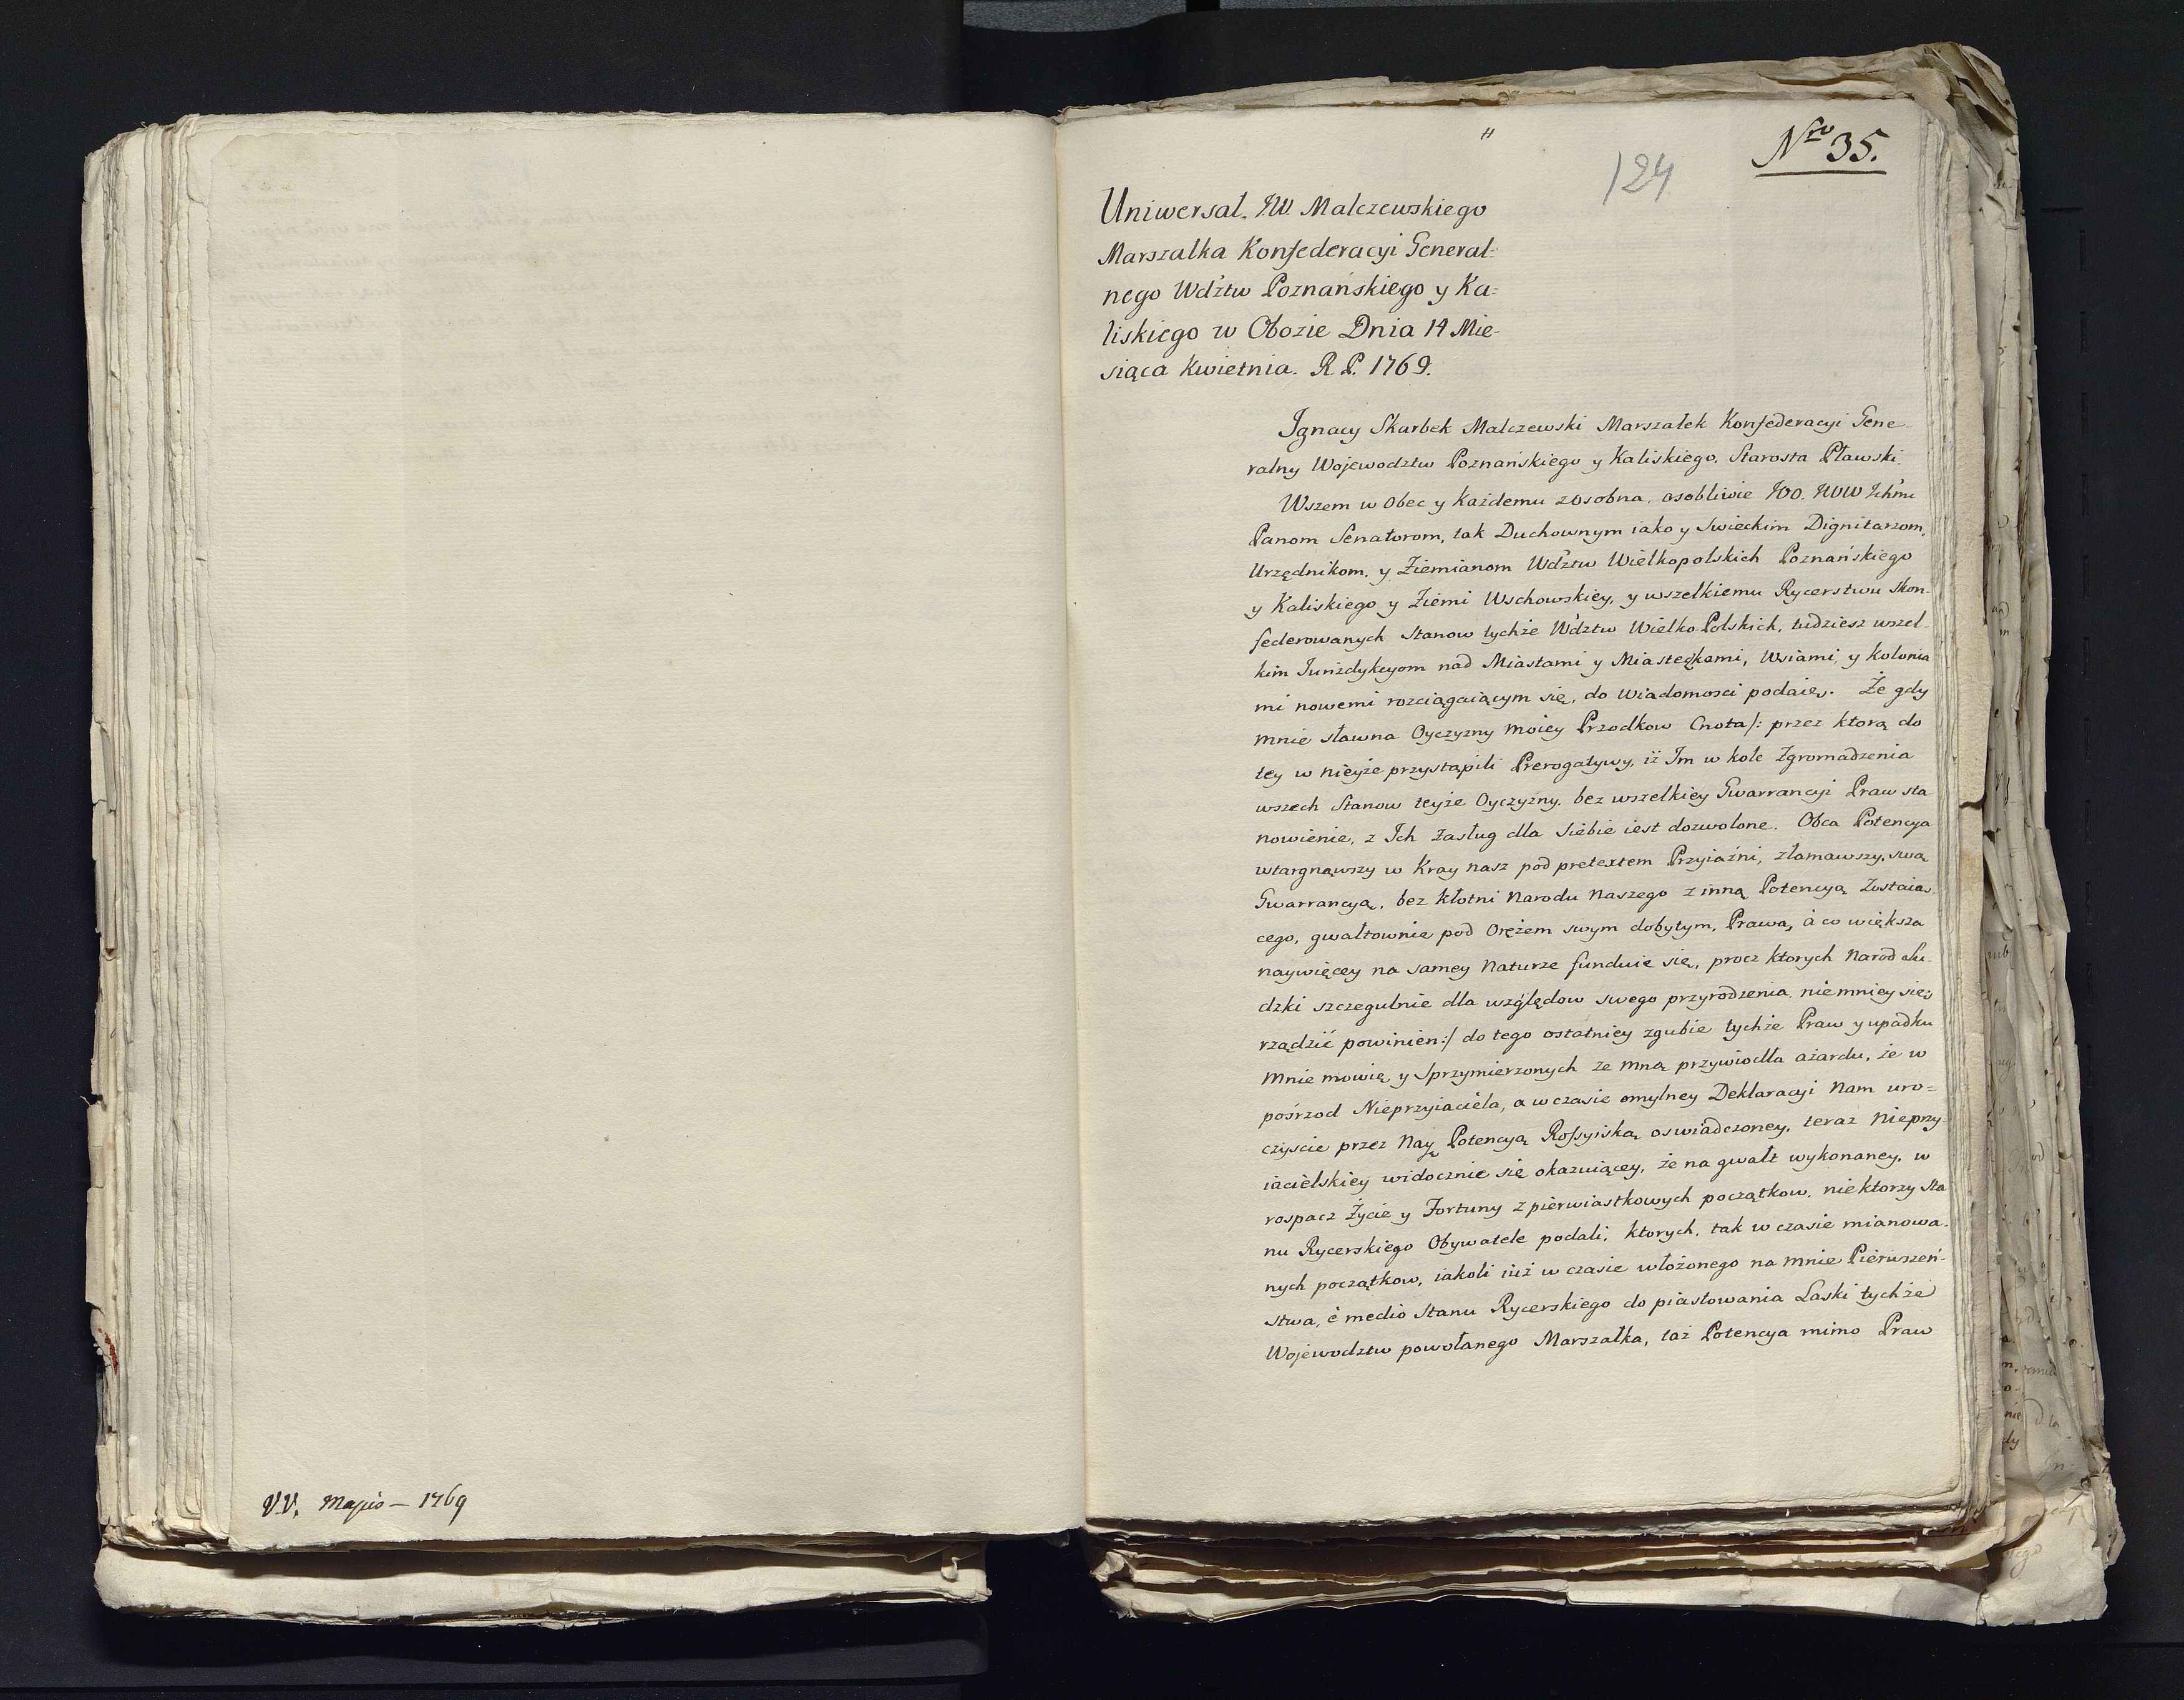 V.V. Majus — 1769
124
Nro 35.
Uniwersał. J.W. Malczewskiego
Marszałka Konfederacyi General=
nego Wdztw Poznańskiego y Ka=
liskiego w Obozie Dnia 14 Mie-
siąca Kwietnia. R. P. 1769.
Ignacy Skarbek Malczewski Marszałek Konfederacyi Gene-
ralny Wojewodztw Poznańskiego y Kaliskiego, Starosta Pławski.
Wszem w Obec y Każdemu zosobna, osobliwie JOO. JWW Ichm
Panom Senatorom, tak Duchownym iako y Swieckim Dignitarzom,
Urzędnikom, y Ziemianom Wdztw Wielkopolskich Poznańskiego
y Kaliskiego y Ziemi Wschowskiey, y wszelkiemu Rycerstwu Skon-
federowanych Stanow tychże Wdztw Wielko Polskich, tudziesz wszel-
kim Jurizdykcyom nad Miastami y Miasteczkami, Wsiami, y Kolonia
mi nowemi rozciągaiącym się, do Wiadomosci podaię. Że gdy
mnie sławna Oyczyzny moiey Przodkow Cnota /: przez ktorą do
tey w nieyże przystąpili Prerogatywy, iż Im w kole Zgromadzenia
wszech Stanow teyże Oyczyzny, bez wszelkiey Gwarrancyi Praw sta
nowienie, z Ich zasług dla Siebie iest dozwolone. Obca Potencya
wtargnąwszy w Kray nasz pod pretextem Przyiaźni, złamawszy, swą
Gwarrancyą, bez kłotni Narodu Naszego z inną Potencyą zostaią-
cego, gwałtownie pod Orężem swym dobytym, Prawa, à co większa
naywięcey na samey Naturze funduie się, procz ktorych Narod Lu-
dzki szczegulnie dla względow swego przyrodzenia, niemniey się
rządzić powinien :/ do tego ostatniey zgubie tychże Praw y upadku
Mnie mowię y Sprzymierzonych ze mną przywiodła ażardu, że w
pośrzod Nieprzyiaciela, a w czasie omylney Deklaracyi Nam uro=
czyscie przez Nay Potencyą Rossyiską oswiadczoney, teraz Nieprzy-
iacielskiey widocznie się okazuiącey, że na gwałt wykonaney, w
rospacz Życie y Fortuny z pierwiastkowych początkow, niektorzy Sta
nu Rycerskiego Obywatele podali; ktorych, tak w czasie mianowa-
nych początkow, iakoli iuż w czasie włożonego na mnie Pierwszeń-
stwa, è medio Stanu Rycerskiego do piastowania Laski tychże
Wojewodztw powołanego Marszałka, taż Potencya mimo Praw